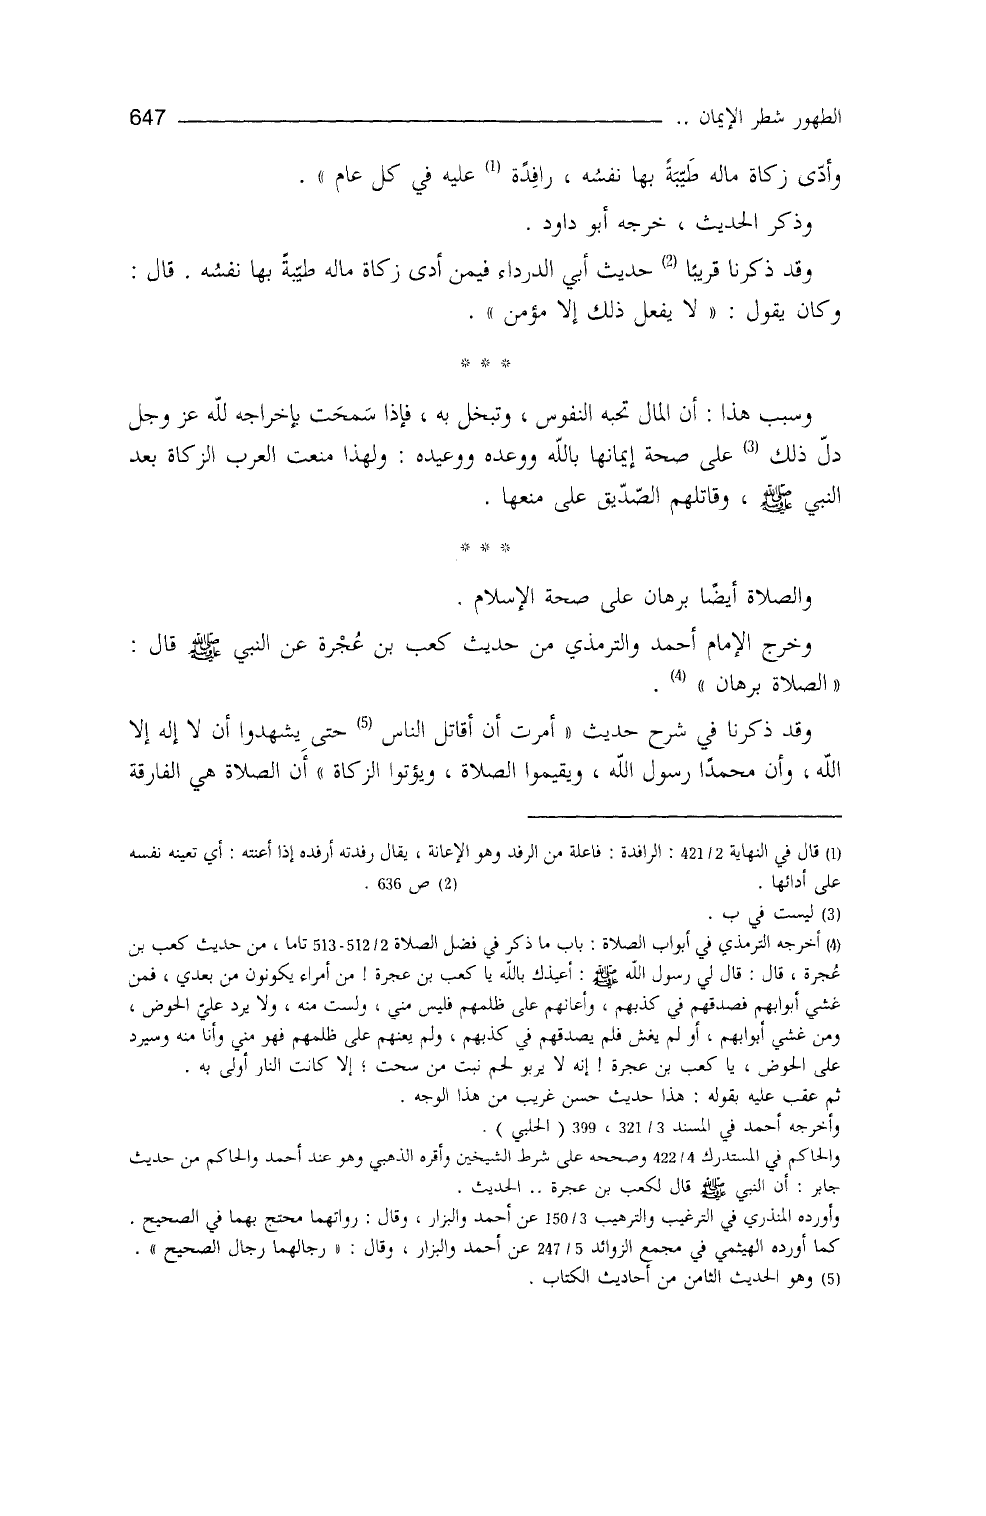 الطهور شطر الإيمان .. 647
وأدّى زكاة ماله طَيِّبَةً بها نفسُه ، رافِدًة (1) عليه في كل عام » .
وذكر الحديث ، خرجه أبو داود .
وقد ذكرنا قريبًا (2) حديث أبي الدرداء فيمن أدى زكاة ماله طيّبةً بها نفسُه . قال :
وكان يقول : « لا يفعل ذلك إلا مؤمن » .
* * *
وسبب هذا : أن المال تحبه النفوس ، وتبخل به ، فإذا سَمحَت بإخراجه للّه عز وجل
دلّ ذلك (3) على صحة إيمانها باللّه ووعده ووعيده : ولهذا منعت العرب الزكاة بعد
النبي ﷺ ، وقاتلهم الصّدّيق على منعها .
* * *
والصلاة أيضًا برهان على صحة الإسلام .
وخرج الإمام أحمد والترمذي من حديث كعب بن عُجْرة عن النبي ﷺ قال :
« الصلاة برهان » (4) .
وقد ذكرنا في شرح حديث « أمرت أن أقاتل الناس (5) حتى يشهدوا أن لا إله إلا
اللّه ، وأن محمدًا رسول اللّه ، ويقيموا الصلاة ، ويؤتوا الزكاة » أن الصلاة هي الفارقة
(1) قال في النهاية 421/2 : الرافدة : فاعلة من الرفد وهو الإعانة ، يقال رفدته أرفده إذا أعنته : أي تعينه نفسه
على أدائها . (2) ص 636 .
(3) ليست في ب .
(4) أخرجه الترمذي في أبواب الصلاة : باب ما ذكر في فضل الصلاة 512/2-513 تاما ، من حديث كعب بن
عُجرة ، قال : قال لي رسول اللّه ﷺ : أعيذك باللّه يا كعب بن عجرة ! من أمراء يكونون من بعدي ، فمن
غشي أبوابهم فصدقهم في كذبهم ، وأعانهم على ظلمهم فليس مني ، ولست منه ، ولا يرد عليّ الحوض ،
ومن غشي أبوابهم ، أو لم يغش فلم يصدقهم في كذبهم ، ولم يعنهم على ظلمهم فهو مني وأنا منه وسيرد
على الحوض ، يا كعب بن عجرة ! إنه لا يربو لحم نبت من سحت ؛ إلا كانت النار أولى به .
ثم عقب عليه بقوله : هذا حديث حسن غريب من هذا الوجه .
وأخرجه أحمد في المسند 321/3 ، 399 ( الحلبي ) .
والحاكم في المستدرك 422/4 وصححه على شرط الشيخين وأقره الذهبي وهو عند أحمد والحاكم من حديث
جابر : أن النبي ﷺ قال لكعب بن عجرة .. الحديث .
وأورده المنذري في الترغيب والترهيب 150/3 عن أحمد والبزار ، وقال : رواتهما محتج بهما في الصحيح .
كما أورده الهيثمي في مجمع الزوائد 247/5 عن أحمد والبزار ، وقال : « رجالهما رجال الصحيح » .
(5) وهو الحديث الثامن من أحاديث الكتاب .